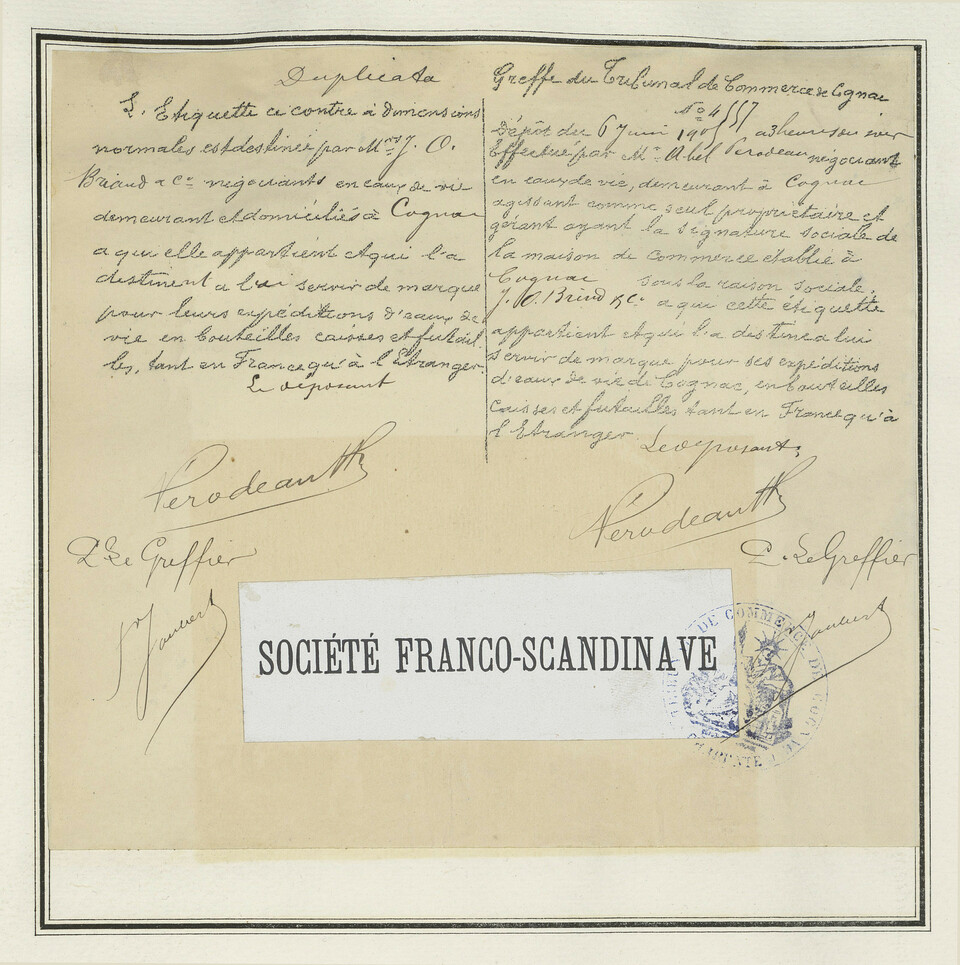 Duplicata
L'Etiquette ci contre à dimensions
normales est destinée par Mrs J. O.
Briand & Co négociants en eaux de vie
demeurant et domiciliés à Cognac
a qui elle appartient et qui l'a
destinent a lui servir de marque
pour leurs expéditions d'eaux de
vie en bouteilles caisses et futail
les, tant en France qu'à l'Etranger.
Le déposant
Perodeau
P. Le Greffier
Joubert
Greffe du Tribunal de Commerce de Cognac
No 4557
Dépôt du 6 Juin à 3 heures du soir
Effectué par Mr Abel Perodeau négociant
en eaux de vie, demeurant à Cognac
agissant comme seul propriétaire et
gérant ayant la signature sociale de
la maison de commerce établie à
Cognac sous la raison sociale,
J. O. Briand & Co a qui cette étiquette
appartient et qui l'a destine a lui
servir de marque pour ses expéditions
d'eaux de vie de Cognac, en bouteilles
caisses et futailles tant en France qu'à
l'Etranger.
Le déposant,
Perodeau
P. Le Greffier
Joubert
SOCIÉTÉ FRANCO-SCANDINAVE
DE COMMERCE DE COGNAC